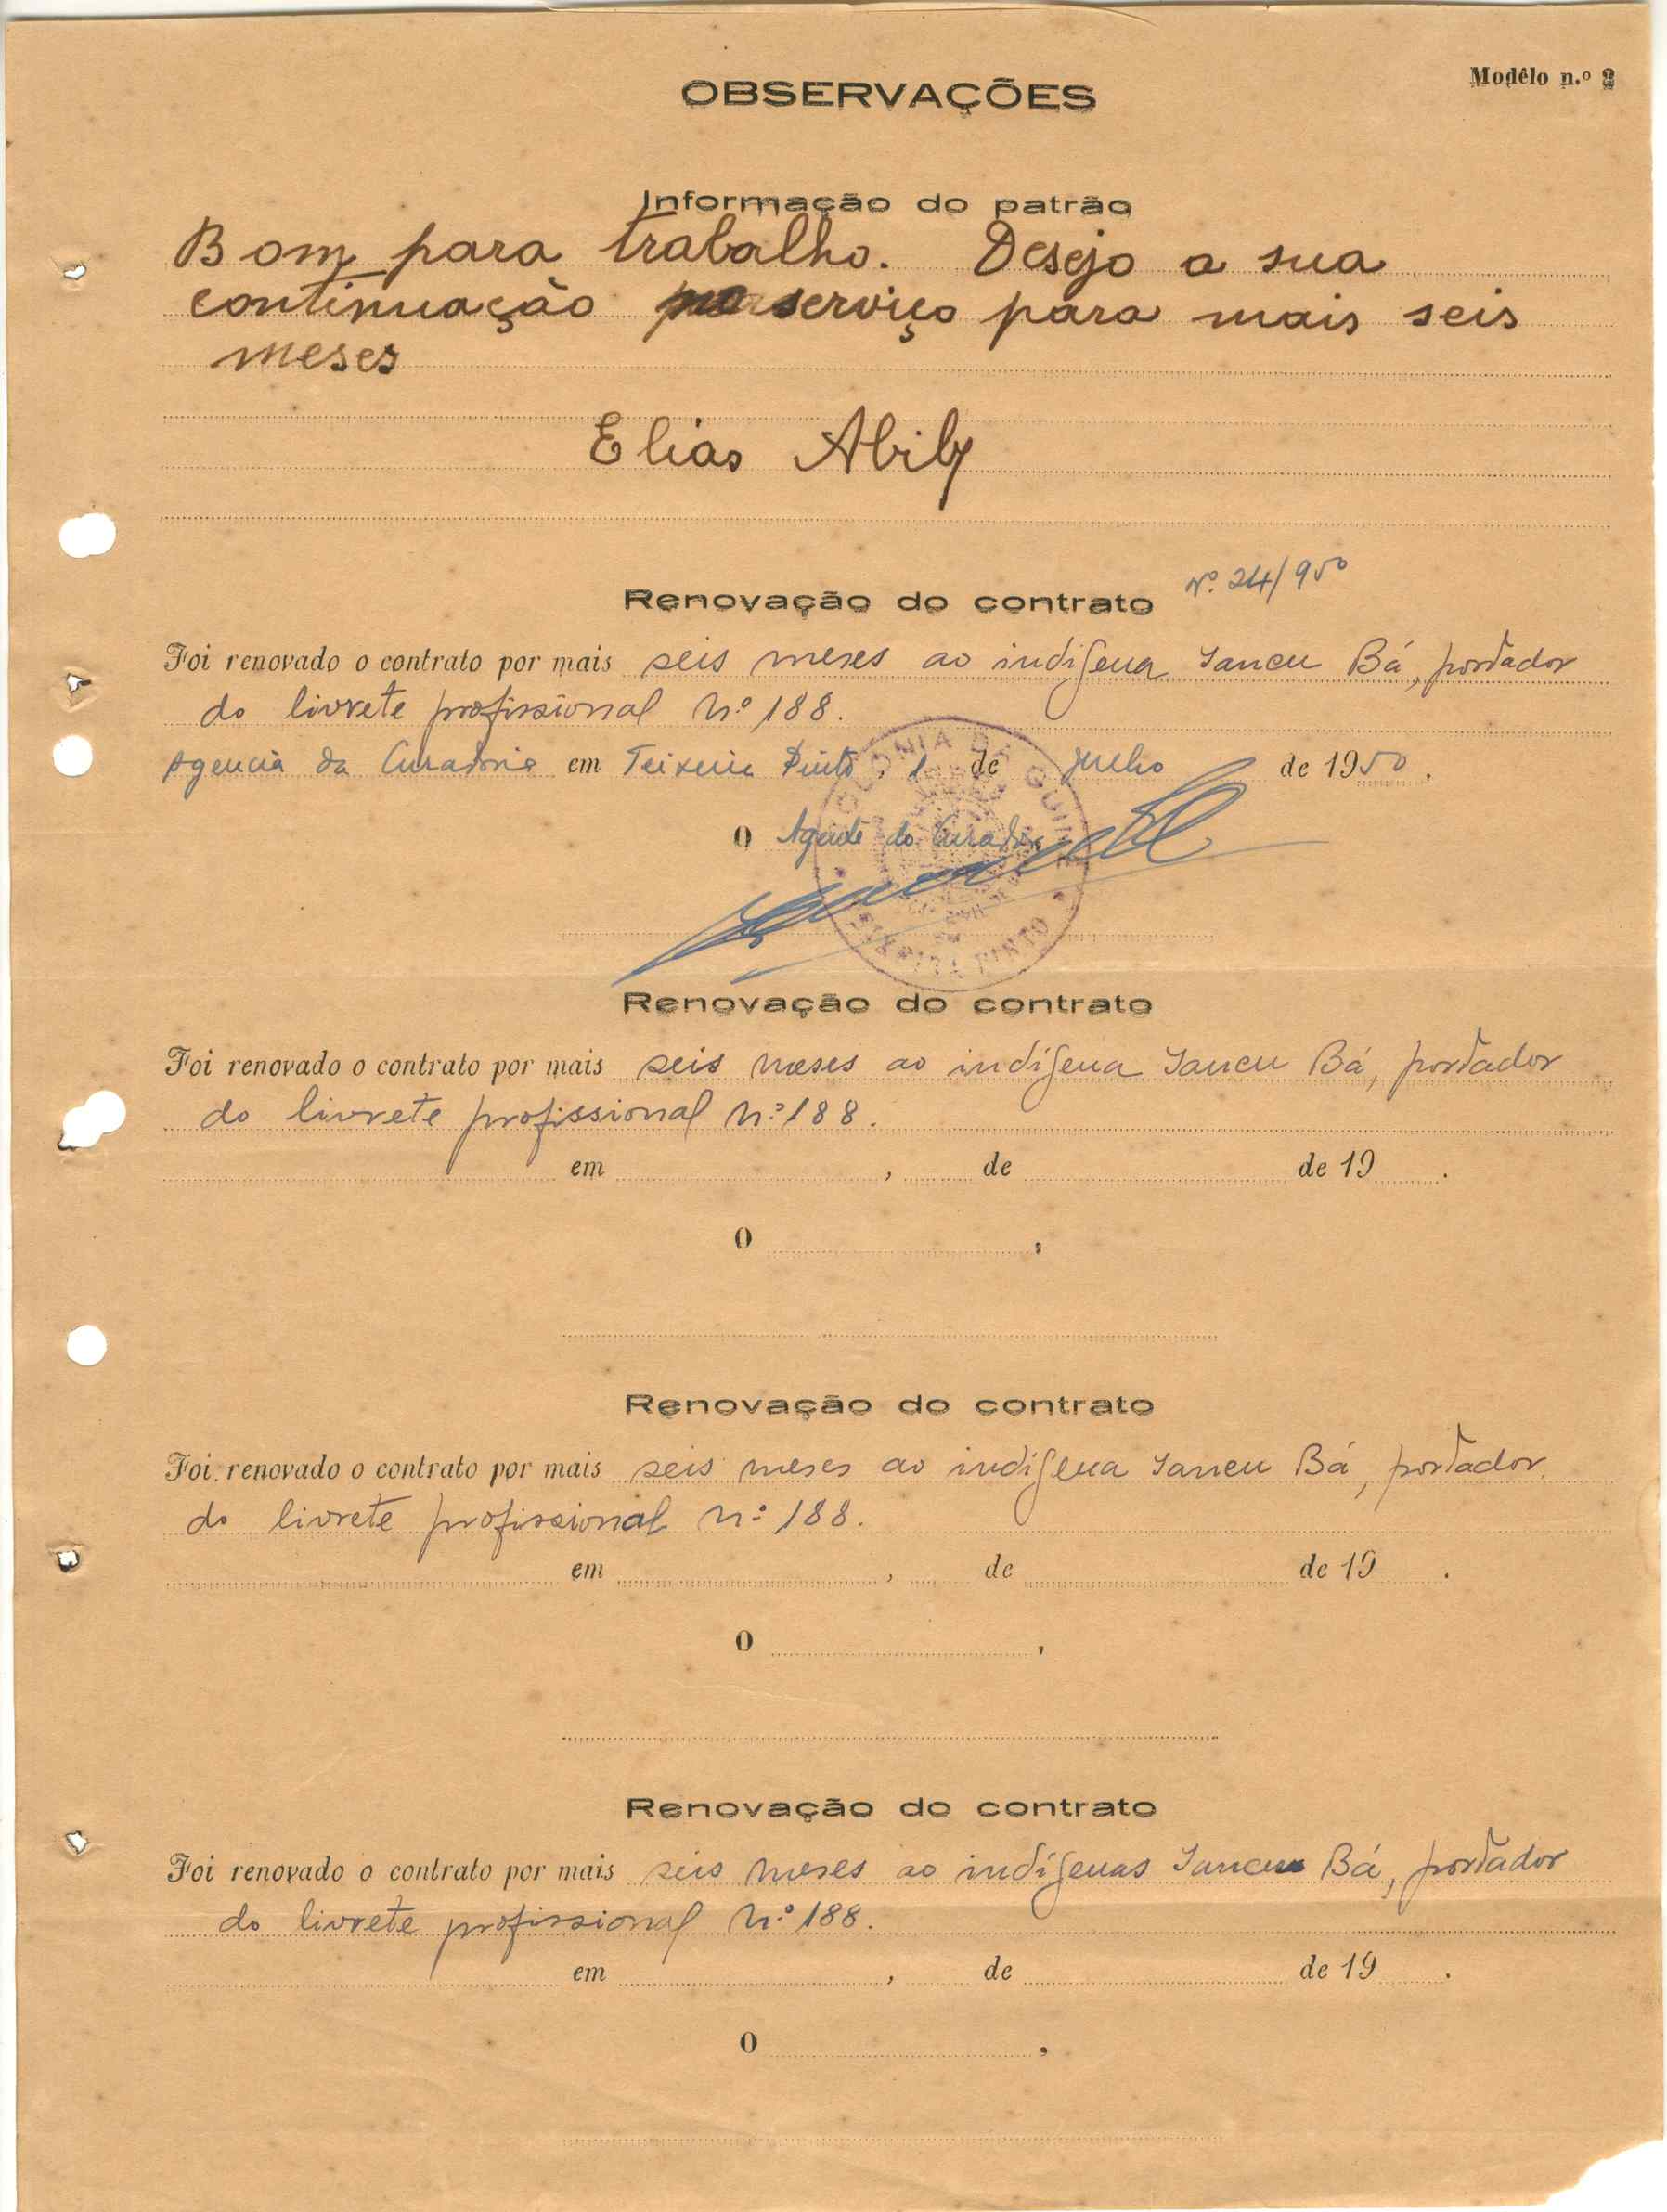 Modêlo n.º 2
OBSERVAÇÕES
Informação do patrão
Bom para trabalho. Desejo a sua
continuação no serviço para mais seis
meses
Elias Abily
Renovação do contrato Nº 24/950
Foi renovado o contrato por mais seis meses ao indígena Iancu Bá, portador
do livrete profissional nº 188.
Agencia da Curadoria em Teixeira Pinto, 1 de Julho de 1950.
O Agente do Curador,
COLONIA DA GUINÉ
TEIXEIRA PINTO
Renovação do contrato
Foi renovado o contrato por mais seis meses ao indígena Iancu Bá, portador
do livrete profissional nº 188.
em , de de 19 .
O ,
Renovação do contrato
Foi renovado o contrato por mais seis meses ao indígena Iancu Bá, portador
do livrete profissional nº 188.
em , de de 19 .
O ,
Renovação do contrato
Foi renovado o contrato por mais seis meses ao indígenas Iancu Bá, portador
do livrete profissional nº 188.
em , de de 19 .
O ,